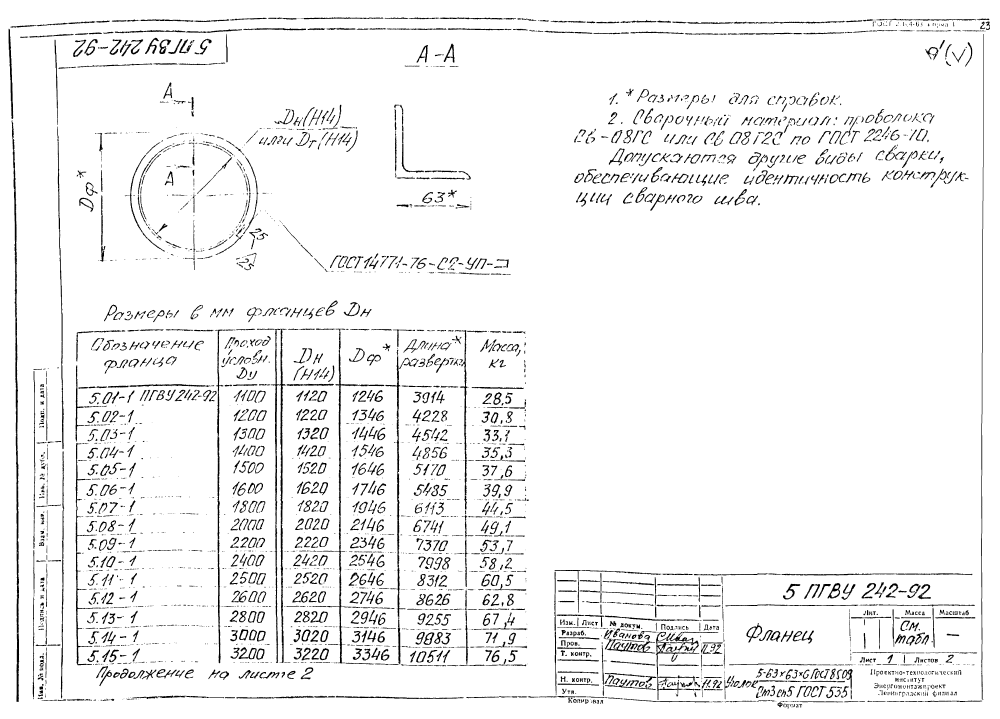 23
5 ПГВУ 242-92
А-А
1. * Размеры для справок.
2. Сварочный материал: проволока
Св-08ГС или Св 08Г2С по ГОСТ 2246-70.
Допускаются другие виды сварки,
обеспечивающие идентичность конструк-
ции сварного шва.
А
Dн(H14)
или Dт(H14)
А
Dф*
63*
25
25
ГОСТ 14771-76-С2-УП-
Размеры в мм фланцев Dн
Обозначение фланца | Проход условн. Dу | Dн (H14) | Dф* | Длина* развертки | Масса, кг
5.01-1 ПГВУ 242-92 1100 1120 1246 3914 28,5
5.02-1 1200 1220 1346 4228 30,8
5.03-1 1300 1320 1446 4542 33,1
5.04-1 1400 1420 1546 4856 35,3
5.05-1 1500 1520 1646 5170 37,6
5.06-1 1600 1620 1746 5485 39,9
5.07-1 1800 1820 1946 6113 44,5
5.08-1 2000 2020 2146 6741 49,1
5.09-1 2200 2220 2346 7370 53,7
5.10-1 2400 2420 2546 7998 58,2
5.11-1 2500 2520 2646 8312 60,5
5.12-1 2600 2620 2746 8626 62,8
5.13-1 2800 2820 2946 9255 67,4
5.14-1 3000 3020 3146 9883 71,9
5.15-1 3200 3220 3346 10511 76,5
Продолжение на листе 2
Подп. и дата
Инв. № дубл.
Взам. инв.
Подпись и дата
Инв. № подл.
5 ПГВУ 242-92
Изм. Лист № докум. Подпись Дата
Разраб. Иванова
Пров. Паутов 11.92
Т. контр.
Н. контр. Паутов 11.92
Утв.
Фланец
Лит. Масса Масштаб
См. табл. —
Лист 1 Листов 2
Уголок 5-63х63х6 ГОСТ 8509
Ст3сп5 ГОСТ 535
Проектно-технологический
институт
Энергомонтажпроект
Ленинградский филиал
Копировал
Формат